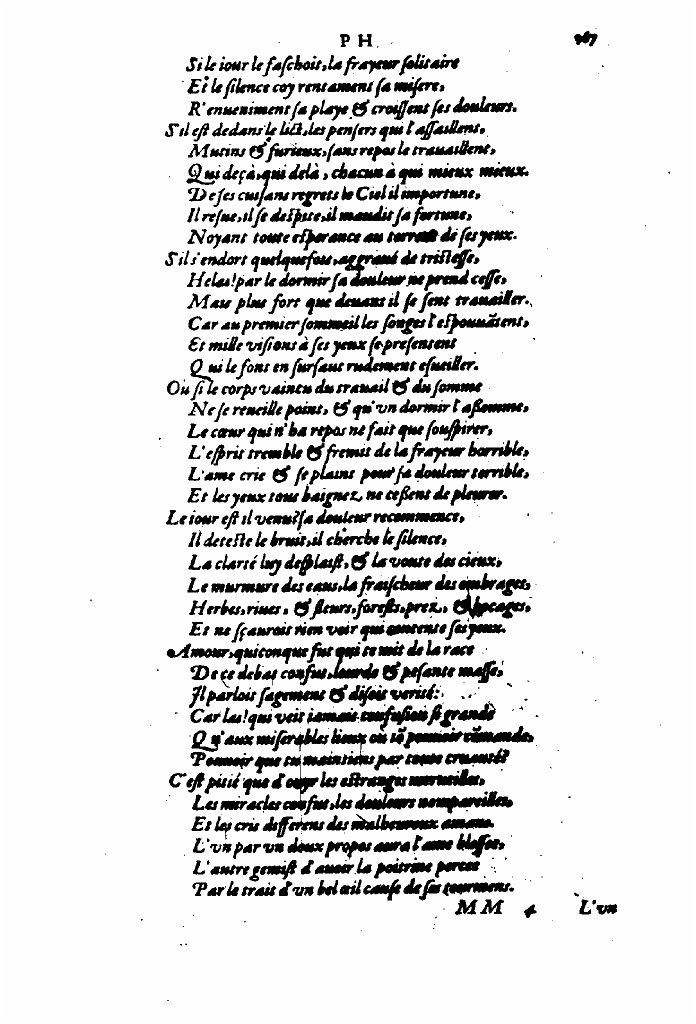 P H 967
Si le iour le faschoit, la frayeur solitaire
Et le silence coy rentament sa misere,
R'enueniment sa playe & croissent ses douleurs.
S'il est dedans le lict, les pensers qui l'assaillent,
Mutins & furieux, sans repos le trauaillent,
Qui deçà, qui delà, chacun à qui mieux mieux.
De ses cuisans regrets le Ciel il importune,
Il resue, il se despite, il maudit sa fortune,
Noyant toute esperance au torrent de ses yeux.
S'il s'endort quelquefois, aggraué de tristesse,
Helas! par le dormir sa douleur ne prend cesse,
Mais plus fort que deuant il se sent trauailler.
Car au premier sommeil les songes l'espouuātent,
Et mille visions à ses yeux se presentent
Qui le font en sursaut rudement esueiller.
Ou si le corps vaincu du trauail & du somme
Ne se reueille point, & qu'vn dormir l'assomme,
Le cœur qui n'ha repos ne fait que souspirer,
L'esprit tremble & fremit de la frayeur horrible,
L'ame crie & se plaint pour sa douleur terrible,
Et les yeux tous baignez, ne cessent de pleurer.
Le iour est il venu? sa douleur recommence,
Il deteste le bruit, il cherche le silence,
La clarté luy desplaist, & la voute des cieux,
Le murmure des eaux, la fraischeur des ombrages,
Herbes, riues, & fleurs, forests, prez, & bocages,
Et ne sçauroit rien voir qui contente ses yeux.
Amour, quiconque fut qui te mit de la race
De ce debat confus, lourde & pesante masse,
Il parloit sagement & disoit verité:
Car las! qui veit iamais confusion si grande
Qu'aux miserables lieux où tō pouuoir cōmande,
Pouuoir que tu maintiens par toute cruauté?
C'est pitié que d'ouyr les estranges merueilles,
Les miracles confus, les douleurs nompareilles,
Et les cris differens des malheureux amans.
L'vn par vn doux propos aura l'ame blessee,
L'autre gemist d'auoir la poitrine percee
Par le trait d'vn bel œil cause de ses tourmens.
MM 4 L'vn